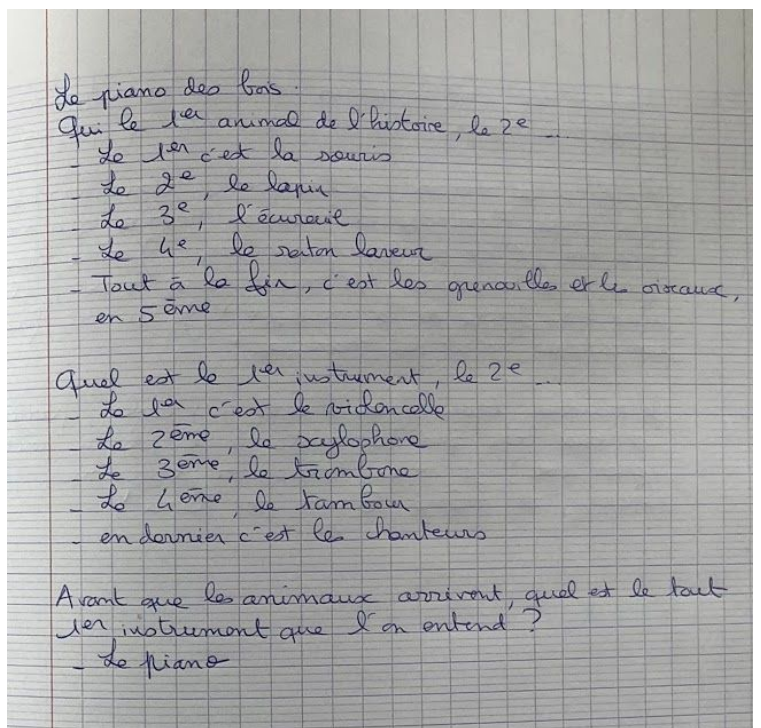 Le piano des bois.
Qui le 1er animal de l'histoire, le 2e ...
- Le 1er c'est la souris
- Le 2e, le lapin
- Le 3e, l'écureuil
- Le 4e, le raton laveur
- Tout à la fin, c'est les grenouilles et les oiseaux,
en 5ème
Quel est le 1er instrument, le 2e ...
- Le 1er c'est le violoncelle
- Le 2ème, le xylophone
- Le 3ème, le trombone
- Le 4ème, le tambour
- en dernier c'est les chanteurs
Avant que les animaux arrivent, quel est le tout
1er instrument que l'on entend ?
- Le piano